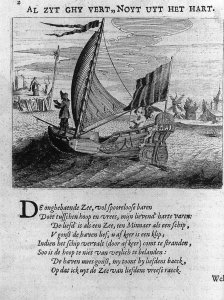 2
AL ZYT GHY VERT, NOYT UYT HET HART.
De ongebaende Zee, vol spoorloose baren
Doet tusschen hoop en vrees, mijn bevend' harte varen:
De liefd' is als een Zee, een Minnaer als een schip,
V gonst de haven lief, u af keer is een klip;
Indien het schip vervalt (door af keer) comt te stranden,
Soo is de hoop te niet van veylich te belanden:
De haven uwes gonst, my toont by liefdens baeck,
Op dat ick uyt de Zee van liefdens vreese raeck.
Wel